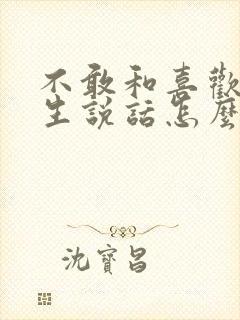 不敢和喜歡
生說話怎麼
沈寶昌